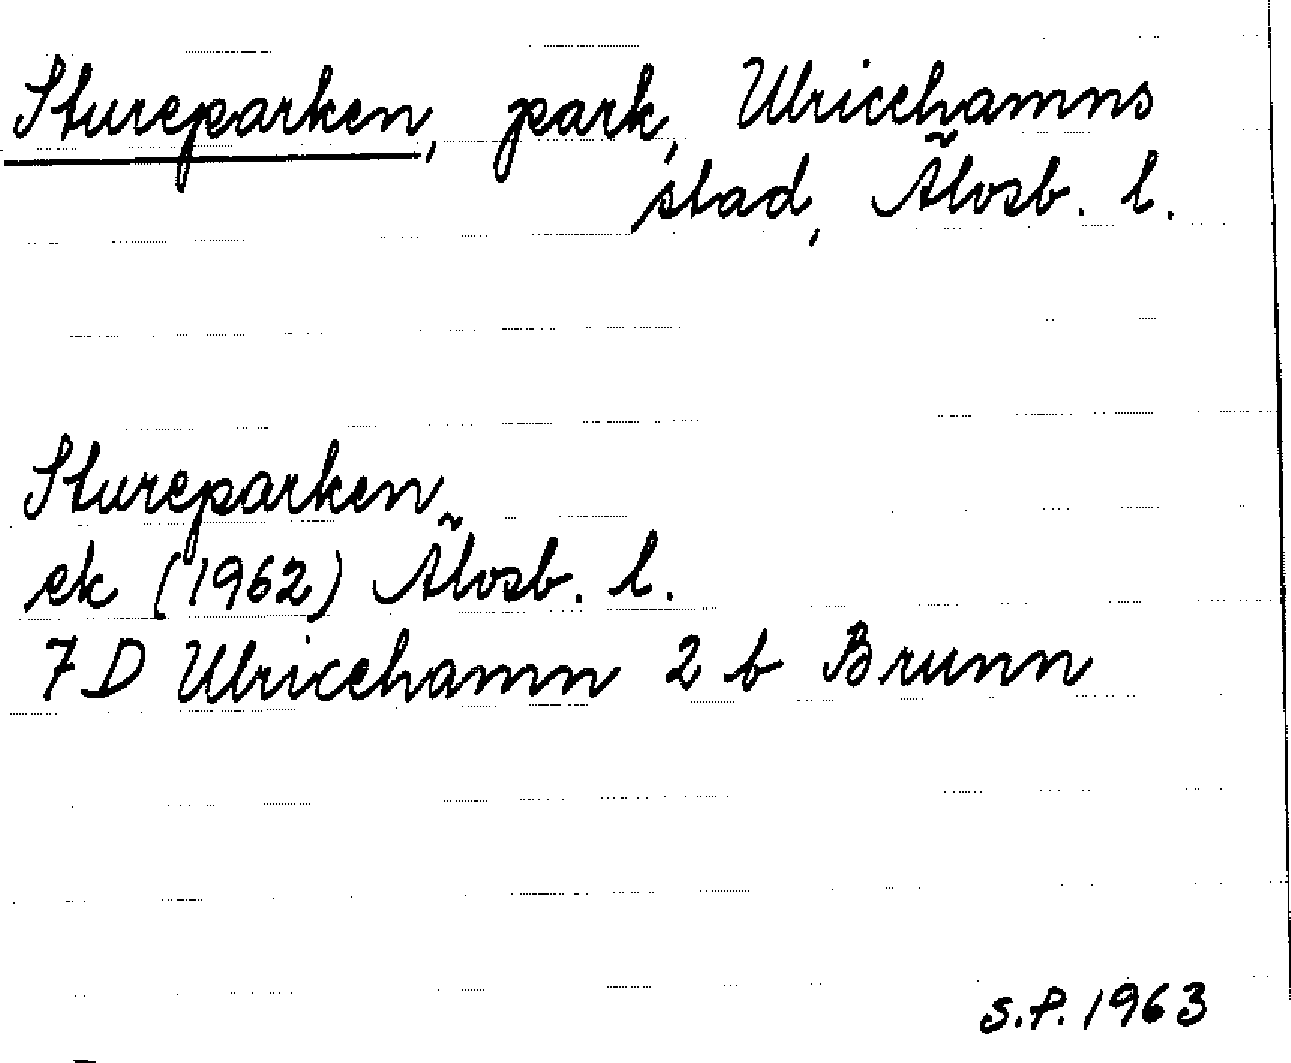 Stureparken, park, Ulricehamns
stad, Älvsb. l.
Stureparken
ek (1962) Älvsb. l.
7 D Ulricehamn 2 b Brunn
S.P. 1963